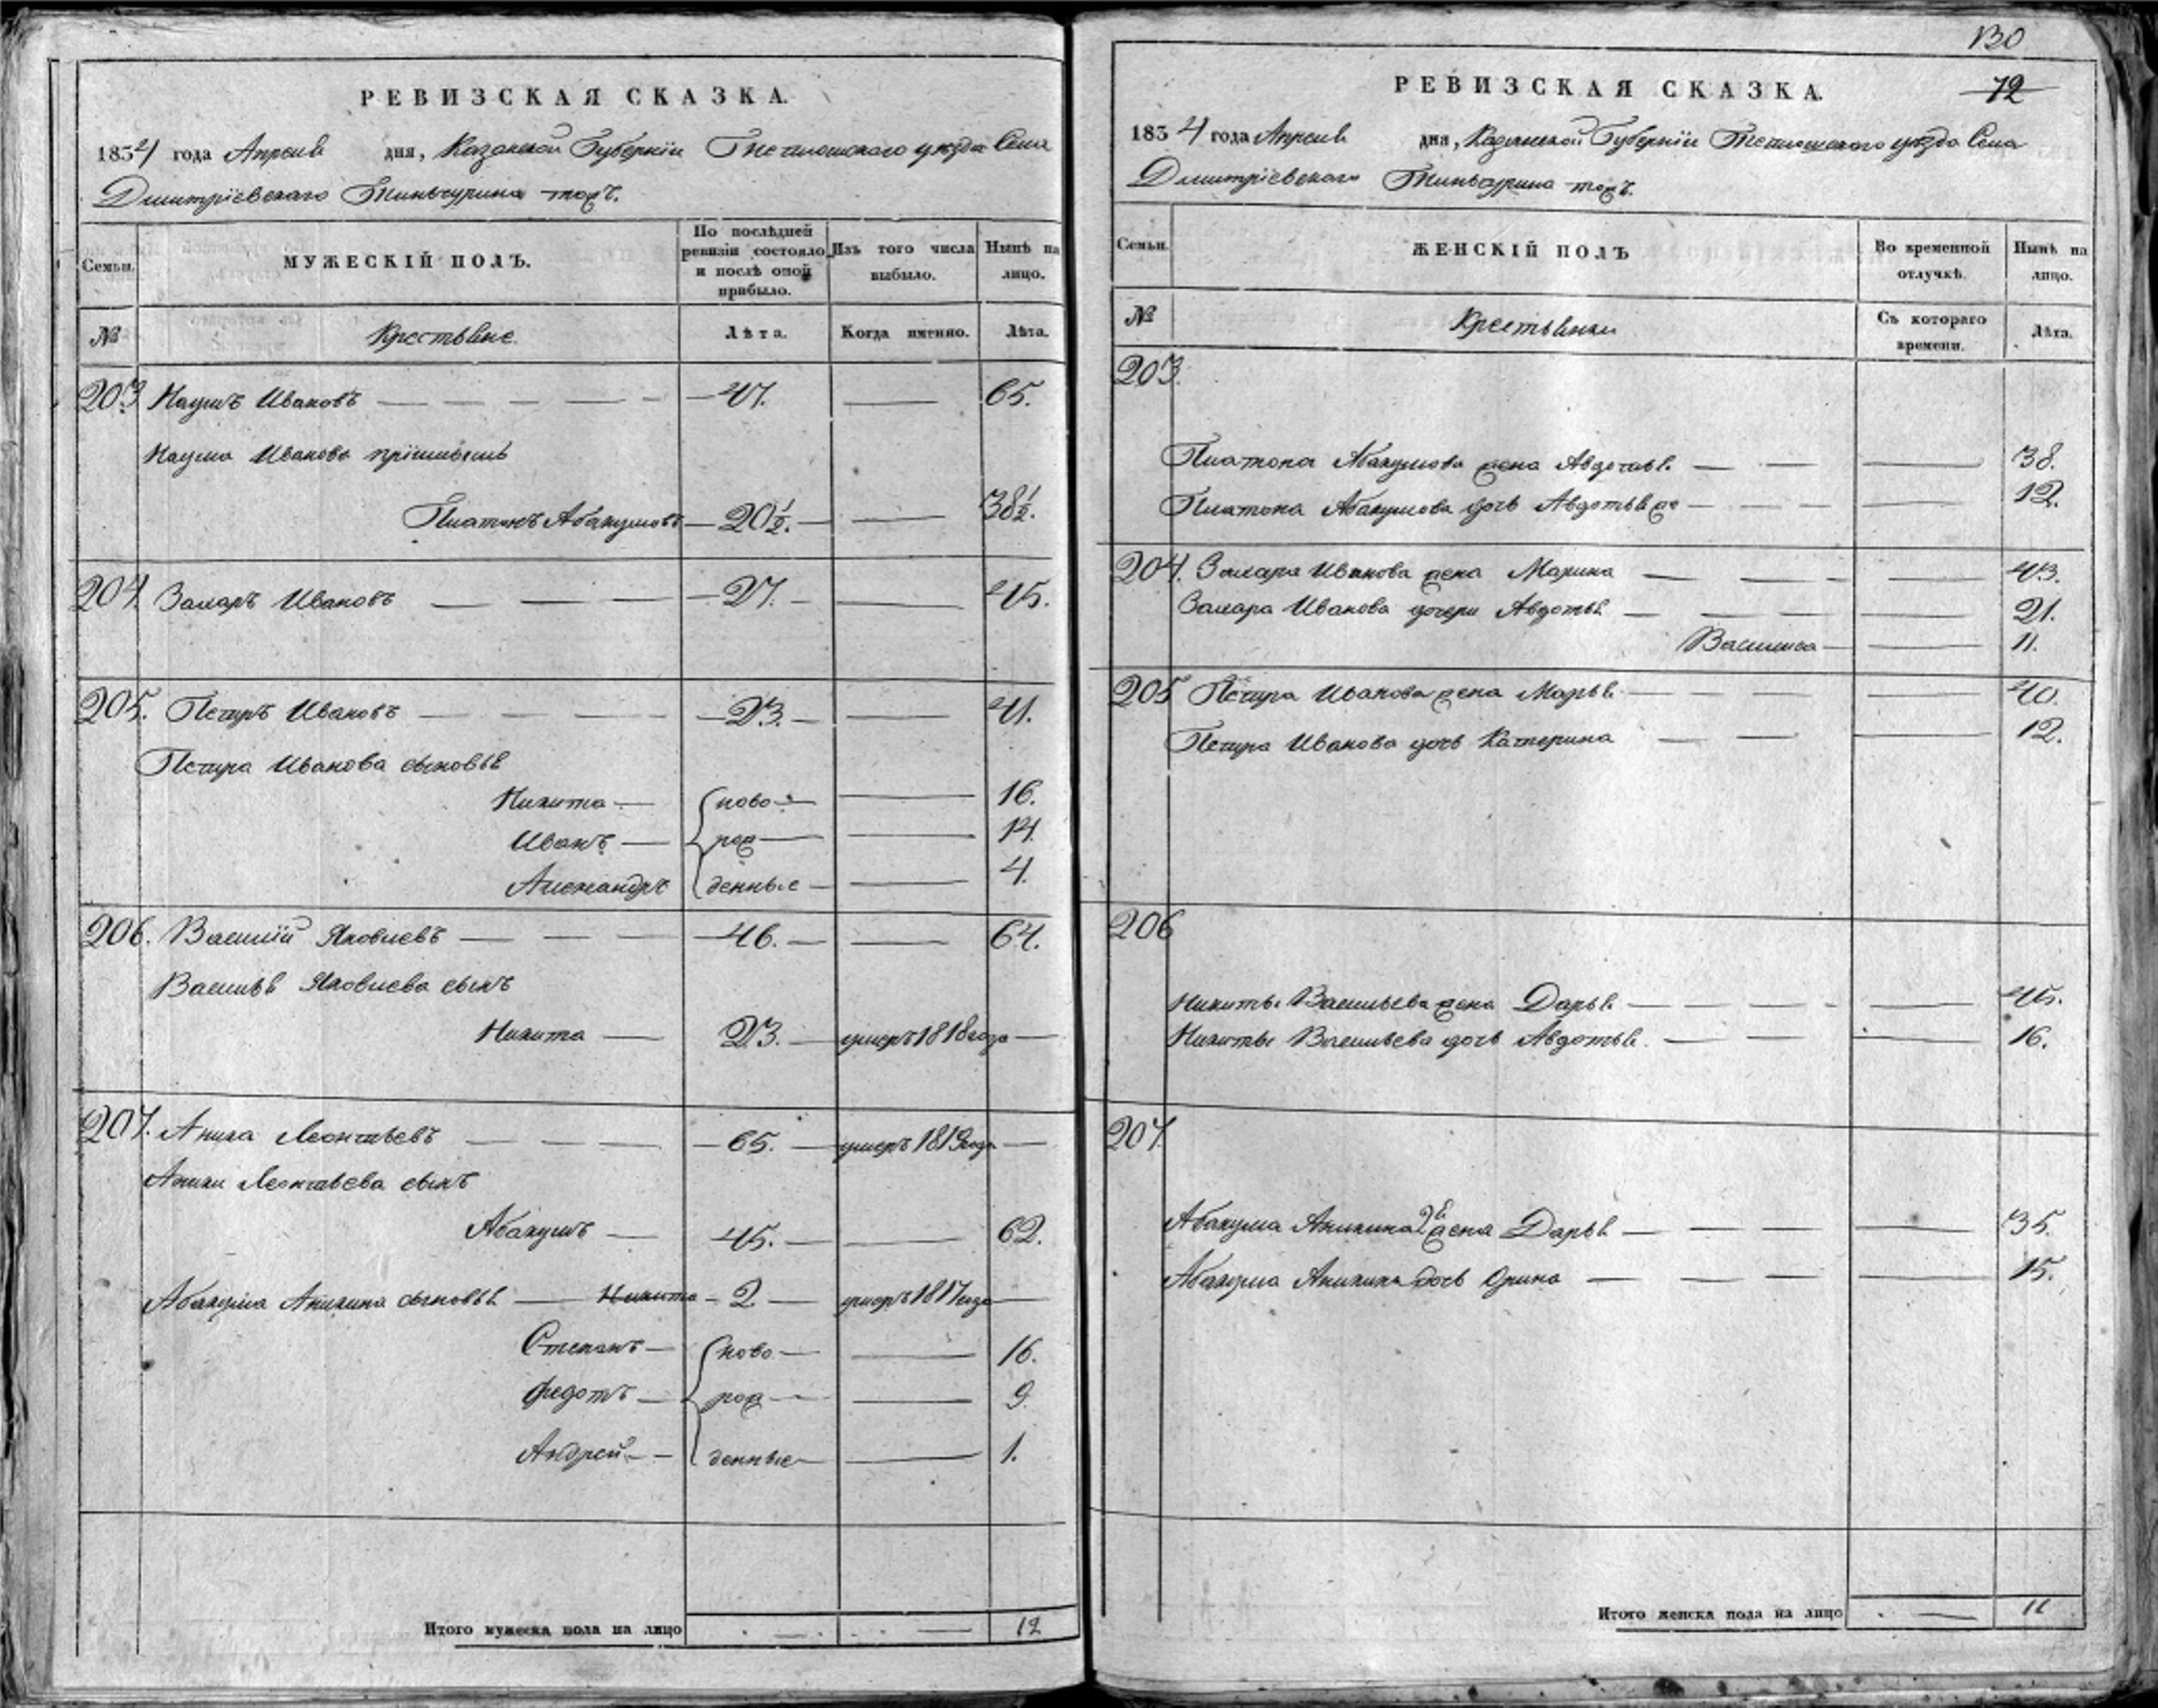 РЕВИЗСКАЯ СКАЗКА.
1834 года Апреля дня, Казанской Губернiи Тетюшскаго уезда Села
Дмитрiевскаго Тиньчурина тожъ.
Семьи.
МУЖЕСКIЙ ПОЛЪ.
По послѣдней ревизiи состояло и послѣ оной прибыло.
Изъ того числа выбыло.
Нынѣ на лицо.
№
Крестьяне.
Лѣта.
Когда именно.
Лѣта.
203 Наумъ Ивановъ 47. 65.
Наума Иванова прiимышъ
Платонъ Абакумовъ 20½. 38½.
204. Захаръ Ивановъ 27. 45.
205. Петръ Ивановъ 23. 41.
Петра Иванова сыновья
Никита ново 16.
Иванъ рож 14.
Александръ денные 4.
206. Василiй Яковлевъ 46. 64.
Василья Яковлева сынъ
Никита 23. умеръ 1818 года
207. Аника Леонтьевъ 65. умеръ 1819 года
Аники Леонтьева сынъ
Абакумъ 45. 62.
Абакума Аникина сыновья Никита 2 умеръ 1817 года
Степанъ ново 16.
Федотъ рож 9.
Андрей денные 1.
Итого мужеска пола на лицо 12
130
РЕВИЗСКАЯ СКАЗКА. 72
1834 года Апреля дня, Казанской Губернiи Тетюшскаго уезда Села
Дмитрiевскаго Тиньчурина тожъ.
Семьи.
ЖЕНСКIЙ ПОЛЪ
Во временной отлучкѣ.
Нынѣ на лицо.
№
Крестьянки
Съ котораго времени.
Лѣта.
203.
Платона Абакумова жена Авдотья 38.
Платона Абакумова дочь Авдотья же 12.
204. Захара Иванова жена Марина 43.
Захара Иванова дочери Авдотья 21.
Василиса 11.
205 Петра Иванова жена Марья 40.
Петра Иванова дочь Катерина 12.
206
Никиты Васильева жена Дарья 45.
Никиты Васильева дочь Авдотья 16.
207.
Абакума Аникина 2я жена Дарья 35.
Абакума Аникина дочь Орина 15.
Итого женска пола на лицо 11